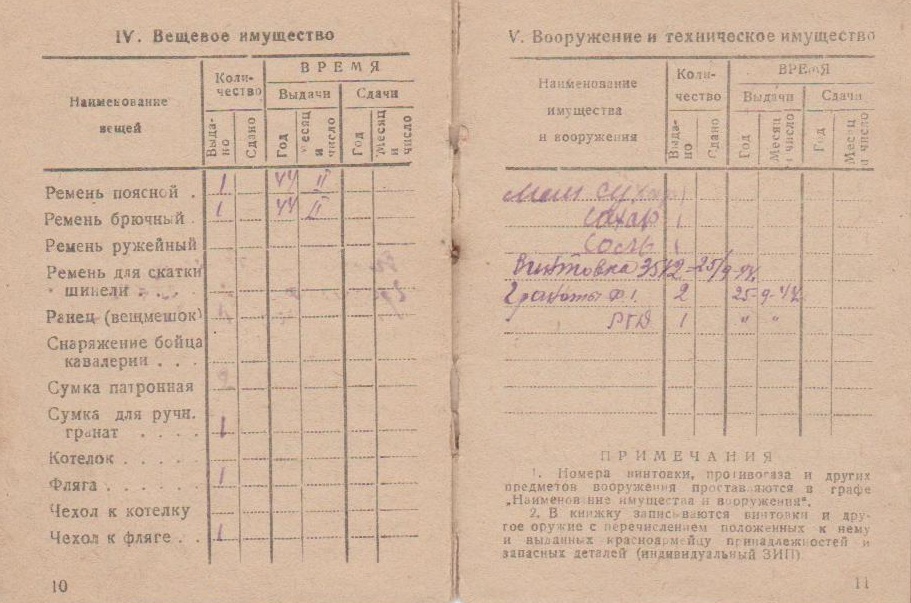 IV. Вещевое имущество
Наименование вещей
Количество
ВРЕМЯ
Выдачи
Сдачи
Выдано
Сдано
Год
Месяц и число
Год
Месяц и число
Ремень поясной . 1 44 II
Ремень брючный . 1 44 II
Ремень ружейный
Ремень для скатки
шинели . . .
Ранец (вещмешок)
Снаряжение бойца
кавалерии . . .
Сумка патронная
Сумка для ручн.
гранат . . . . 1
Котелок . . . . .
Фляга . . . . . 1
Чехол к котелку
Чехол к фляге . . 1
10
V. Вооружение и техническое имущество
Наименование
имущества
и вооружения
Количество
ВРЕМЯ
Выдачи
Сдачи
Выдано
Сдано
Год
Месяц и число
Год
Месяц и число
сахар 1
соль 1
Винтовка
Ф 1. 2 25-9-44
РГД 1 " "
ПРИМЕЧАНИЯ
1. Номера винтовки, противогаза и других
предметов вооружения проставляются в графе
„Наименование имущества и вооружения“.
2. В книжку записываются винтовки и дру-
гое оружие с перечислением положенных к нему
и выданных красноармейцу принадлежностей и
запасных деталей (индивидуальный ЗИП)
11